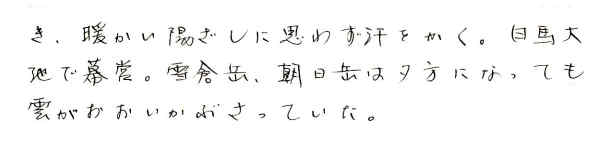 き、暖かい陽ざしに思わず汗をかく。白馬大
池で幕営。雪倉岳、朝日岳は夕方になっても
雲がおおいかぶさっていた。